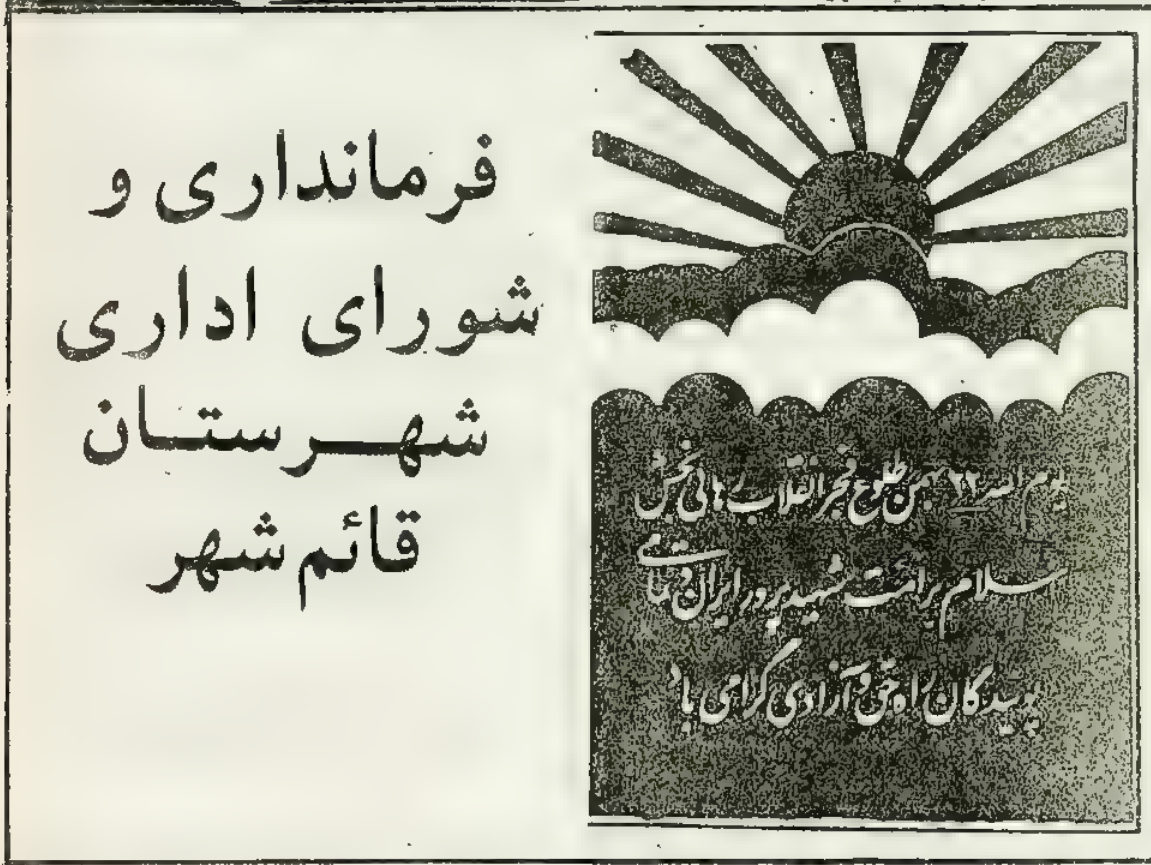 یوم الله ۲۲ بهمن طلوع فجر انقلاب رهائی بخش
اسلام بر امت شهید پرور ایران و تمامی
پویندگان راه حق و آزادی گرامی باد
فرمانداری و
شورای اداری
شهرستان
قائم شهر